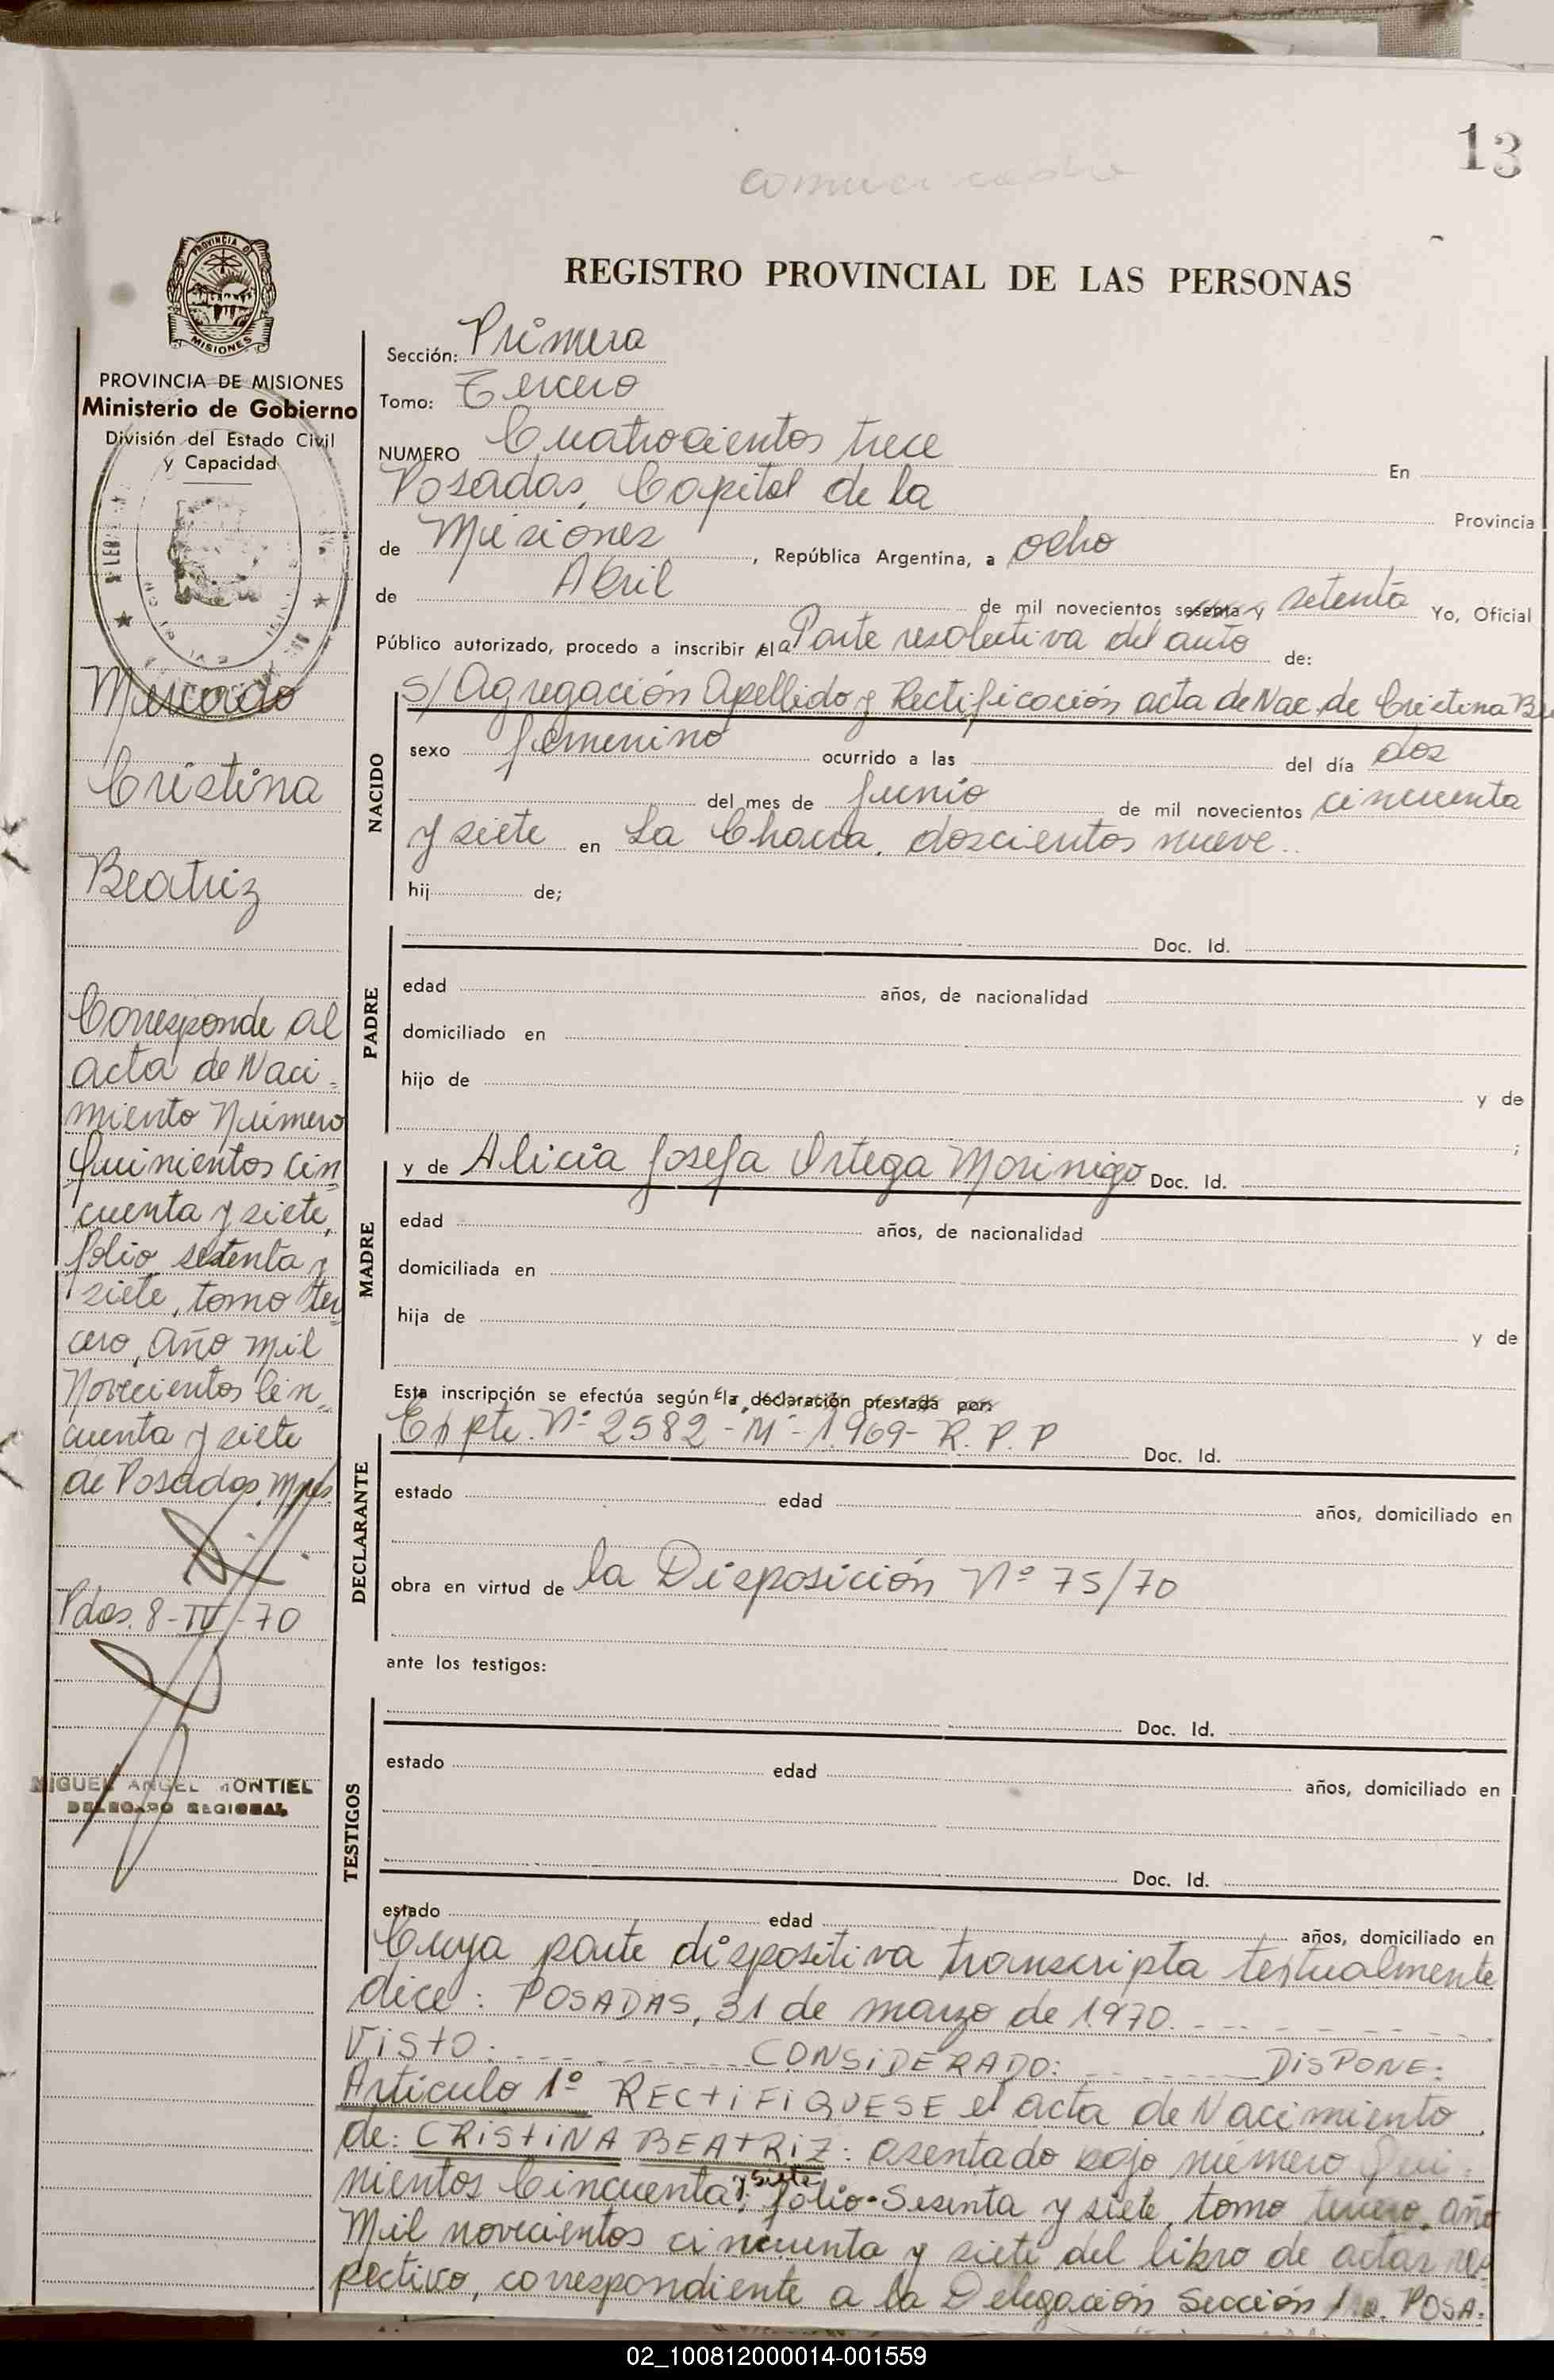 13
PROVINCIA D
MISIONES
REGISTRO PROVINCIAL DE LAS PERSONAS
PROVINCIA DE MISIONES
Ministerio de Gobierno
División del Estado Civil
y Capacidad
Mercado
Cristina
Beatriz
Corresponde al
acta de Naci=
miento Número
Quinientos cin
cuenta y siete,
folio setenta y
siete, tomo ter
cero, año mil
Novecientos Cin
cuenta y siete
de Posadas, Mnes
Pdas. 8-IV-70
MIGUEL ANGEL MONTIEL
DELEGADO REGIONAL
Sección: Primera
Tomo: Tercero
NUMERO Cuatrocientos trece En
Posadas, Capital de la Provincia
de Misiones, República Argentina, a ocho
de Abril de mil novecientos sesenta y setenta Yo, Oficial
Público autorizado, procedo a inscribir el a Parte resolutiva del auto de:
s/ Agregación Apellido y Rectificación acta de Nac. de Cristina B
NACIDO
sexo femenino ocurrido a las del día dos
del mes de Junio de mil novecientos cincuenta
y siete en La Chacra, doscientos nueve..
hij de;
Doc. Id.
PADRE
edad años, de nacionalidad
domiciliado en
hijo de y de
;
MADRE
y de Alicia Josefa Ortega Morinigo Doc. Id.
edad años, de nacionalidad
domiciliada en
hija de y de
Esta inscripción se efectúa según El la, declaración prestada por:
DECLARANTE
Expte. Nº 2582-M-1.969- R.P.P Doc. Id.
estado edad años, domiciliado en
obra en virtud de la Disposición Nº 75/70
ante los testigos:
TESTIGOS
Doc. Id.
estado edad años, domiciliado en
Doc. Id.
estado edad años, domiciliado en
Cuya parte dispositiva transcripta textualmente
dice: POSADAS, 31 de marzo de 1970.
VISTO: CONSIDERADO: DISPONE:
Artículo 1º RECTIFIQUESE el acta de Nacimiento
de: CRISTINA BEATRIZ: asentado bajo número Qui=
nientos Cincuenta y siete; folio Sesenta y siete, tomo tercero, año
Mil novecientos cincuenta y siete del libro de actas res
pectivo, correspondiente a la Delegación Sección 1ra. POSA=
02_100812000014-001559